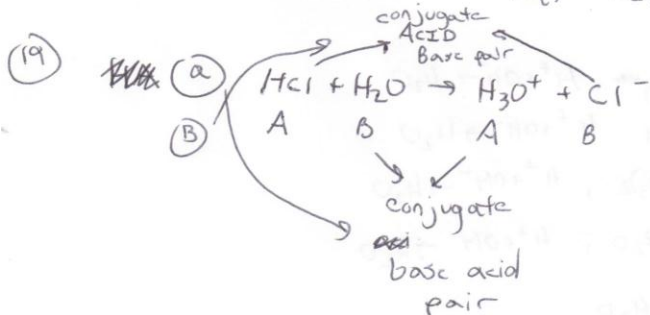 conjugate
ACID
Base pair
(19) (a) HCl + H₂O → H₃O⁺ + Cl⁻
(B) A B A B
conjugate
base acid
pair